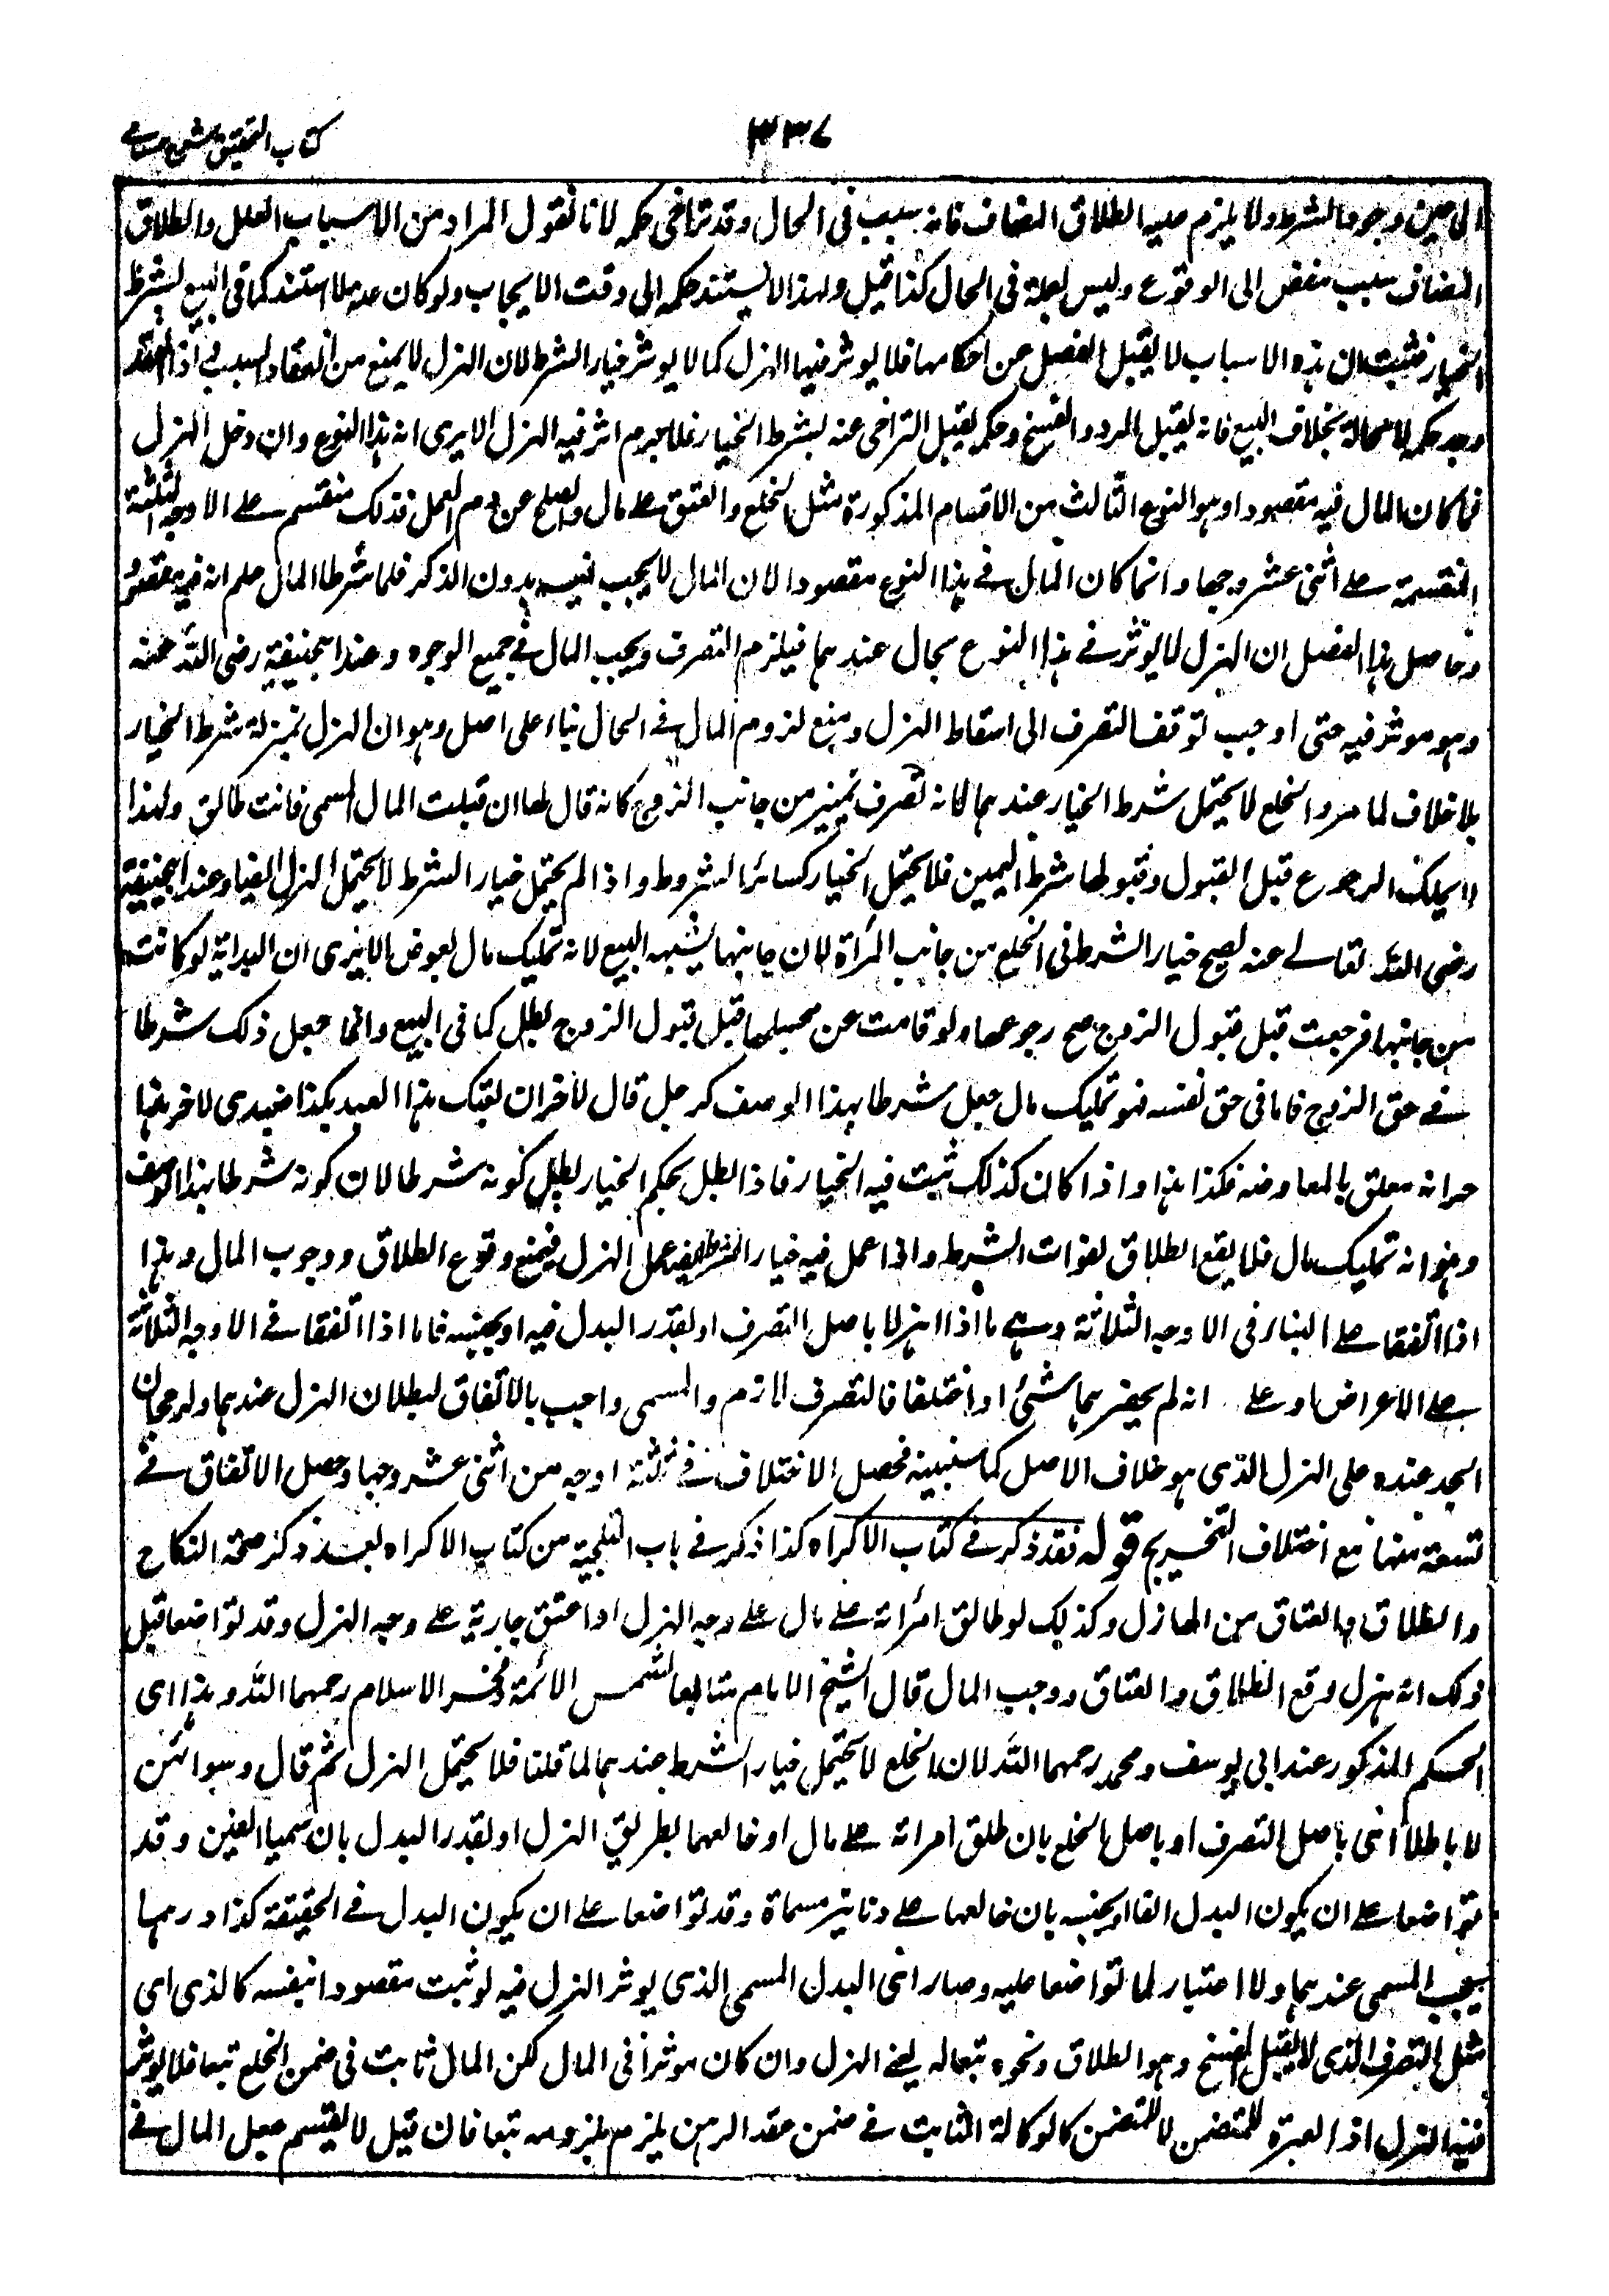 كتاب التحقيق شرح حسامى
٣٣٧
الى حين وجود الشرط ولا يلزم عليه الطلاق المضاف فانه سبب فى الحال وقد تراخى حكمه لانا نقول المراد من الاسباب العلل والطلاق
المضاف سبب مفض الى الوقوع وليس بعلة فى الحال كذا قيل ولهذا لا يستند حكمه الى وقت الايجاب ولو كان علة لاستند كما فى البيع بشرط
الخيار فثبت ان هذه الاسباب لا يقبل الفصل عن احكامها فلا يوثر فيها الهزل كما لا يوثر خيار الشرط لان الهزل لا يمنع من انعقاد السبب فى اذا انعقد
وجد حكمه لا محالة بخلاف البيع فانه يقبل الرد والفسخ وحكمه يقبل التراخى عنه بشرط الخيار فلا جرم اثر فيه الهزل الا يرى انه هذا النوع وان دخل الهزل
فما كان المال فيه مقصودا وهو النوع الثالث من الاقسام المذكورة مثل الخلع والعتق على مال والصلح عن دم العمد فذلك منقسم على الاوجه الثلثة
المنقسمة على اثنى عشر وجها وانما كان المال فى هذا النوع مقصودا لان المال لا يجب فيه بدون الذكر فلما شرطا المال علم انه فيه مقصود
وحاصل هذا الفصل ان الهزل لا يوثر فى هذا النوع بحال عندهما فيلزم التصرف ويجب المال فى جميع الوجوه وعند ابيحنيفة رضى الله عنه
وهو موثر فيه حتى اوجب توقف التصرف الى اسقاط الهزل ومنع لزوم المال فى الحال بناء على اصل وهو ان الهزل بمنزلة شرط الخيار
بلا خلاف لما مر والخلع لا يحتمل شرط الخيار عندهما لانه تصرف يمين من جانب الزوج كانه قال لها ان قبلت المال المسمى فانت طالق ولهذا
لا يملك الرجوع قبل القبول وقبولها شرط اليمين فلا يحتمل الخيار كسائر الشروط واذا لم يحتمل خيار الشرط لا يحتمل الهزل ايضا وعند ابيحنيفة
رضى الله تعالى عنه يصح خيار الشرط فى الخلع من جانب المرأة لان جانبها يشبه البيع لانه تمليك مال بعوض الا يرى ان البداية لو كانت
من جانبها فرجعت قبل قبول الزوج صح رجوعها ولو قامت عن مجلسها قبل قبول الزوج بطل كما فى البيع وانما جعل ذلك شرطا
فى حق الزوج فاما فى حق نفسه فهو تمليك مال جعل شرطا بهذا الوصف كرجل قال لآخر ان بعتك هذا العبد بكذا فعبدى لآخر هذا
حر انه معلق بالمعاوضه فكذا هذا واذا كان كذلك ثبت فيه الخيار فاذا بطل بحكم الخيار بطل كونه شرطا لان كونه شرطا بهذا الوصف
وهو انه تمليك مال فلا يقع الطلاق لفوات الشرط واذا عمل فيه خيار الشرط يعمل الهزل فيمنع وقوع الطلاق ووجوب المال وهذا
اذا اتفقا على البناء فى الاوجه الثلاثة وهى ما اذا هزلا باصل التصرف او بقدر البدل فيه او بجنسه فاما اذا اتفقا فى الاوجه الثلاثة
على الاعراض او على انه لم يحضرهما شئ او اختلفا فالتصرف لازم والمسمى واجب بالاتفاق لبطلان الهزل عندهما ولرجحان
الجد عنده على الهزل الذى هو خلاف الاصل كما سنبينه فحصل الاختلاف فى ثلثة اوجه من اثنى عشر وجها وحصل الاتفاق فى
تسعة منها مع اختلاف التخريج قوله فقد ذكر فى كتاب الاكراه كذا ذكر فى باب التلجية من كتاب الاكراه بعد ذكر صحة النكاح
والطلاق والعتاق من الهازل وكذلك لو طالق امرأته على مال على وجه الهزل او اعتق جارية على وجه الهزل وقد تواضعا قبل
ذلك انه هزل وقع الطلاق والعتاق ووجب المال قال الشيخ الامام متابعا لشمس الائمة وفخر الاسلام رحمهما الله وهذا اى
الحكم المذكور عند ابى يوسف ومحمد رحمهما الله لان الخلع لا يحتمل خيار الشرط عندهما لما قلنا فلا يحتمل الهزل ثم قال وسواء هزلا
لا باطلا اى باصل التصرف او باصل الخلع بان طلق امراته على مال او خالعهما بطريق الهزل او بقدر البدل بان سميا الفين وقد
تواضعا على ان يكون البدل الفا او بجنسه بان خالعها على دنانير مسماة وقد تواضعا على ان يكون البدل فى الحقيقة كذا درهما
يجب المسمى عندهما ولا اعتبار لما تواضعا عليه وصار اى البدل المسمى الذى يوثر الهزل فيه لو ثبت مقصودا بنفسه كالذى اى
مثل التصرف الذى لا يقبل الفسخ وهو الطلاق ونحوه تبعا له يعنى الهزل وان كان موثرا فى المال لكن المال ثابت فى ضمن الخلع تبعا فلا يوثر
فيه الهزل اذ العبرة للمتضمن لا للمتضمن كالوكالة الثابت فى ضمن عقد الرهن يلزم بلزومه تبعا فان قيل لا يقسم جعل المال فى